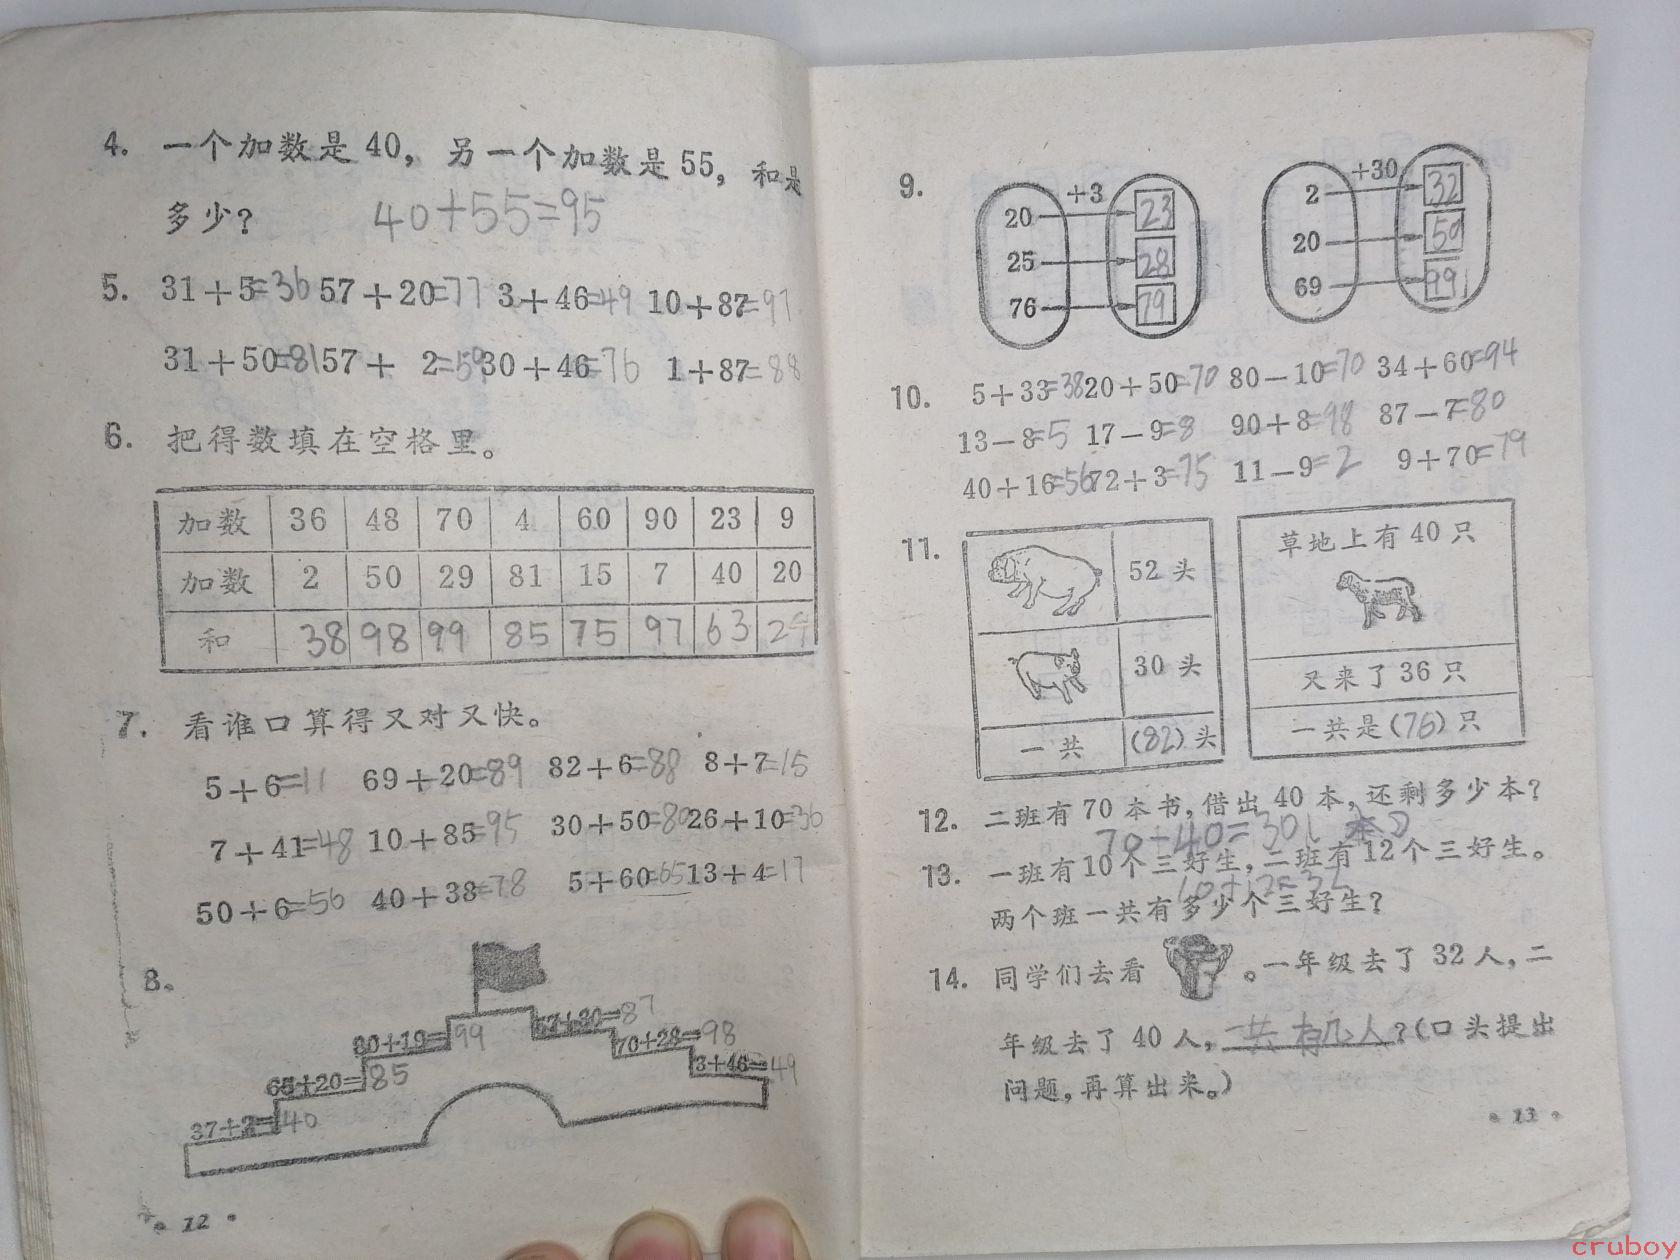 4. 一个加数是 40, 另一个加数是 55, 和是
多少? 40+55=95
5. 31+5=36 57+20=77 3+46=49 10+87=97
31+50=81 57+ 2=59 30+46=76 1+87=88
6. 把得数填在空格里。
加数 36 48 70 4 60 90 23 9
加数 2 50 29 81 15 7 40 20
和 38 98 99 85 75 97 63 29
7. 看谁口算得又对又快。
5+6=11 69+20=89 82+6=88 8+7=15
7+41=48 10+85=95 30+50=80 26+10=36
50+6=56 40+38=78 5+60=65 13+4=17
8.
80+19=99 57+30=87
65+20=85 70+28=98
37+2=40 3+46=49
• 12 •
9. +3 +30
20 23 2 32
25 28 20 50
76 79 69 99
10. 5+33=38 20+50=70 80-10=70 34+60=94
13-8=5 17-9=8 90+8=98 87-7=80
40+16=56 72+3=75 11-9=2 9+70=79
11. 52 头 草地上有 40 只
30 头 又来了 36 只
一共 (82) 头 一共是 (76) 只
12. 二班有 70 本书, 借出 40 本, 还剩多少本?
70-40=30(本)
13. 一班有10个三好生, 二班有12个三好生。
两个班一共有多少个三好生?
14. 同学们去看 。一年级去了 32 人, 二
年级去了 40 人, 一共有几人?(口头提出
问题, 再算出来。)
• 13 •
cruboy